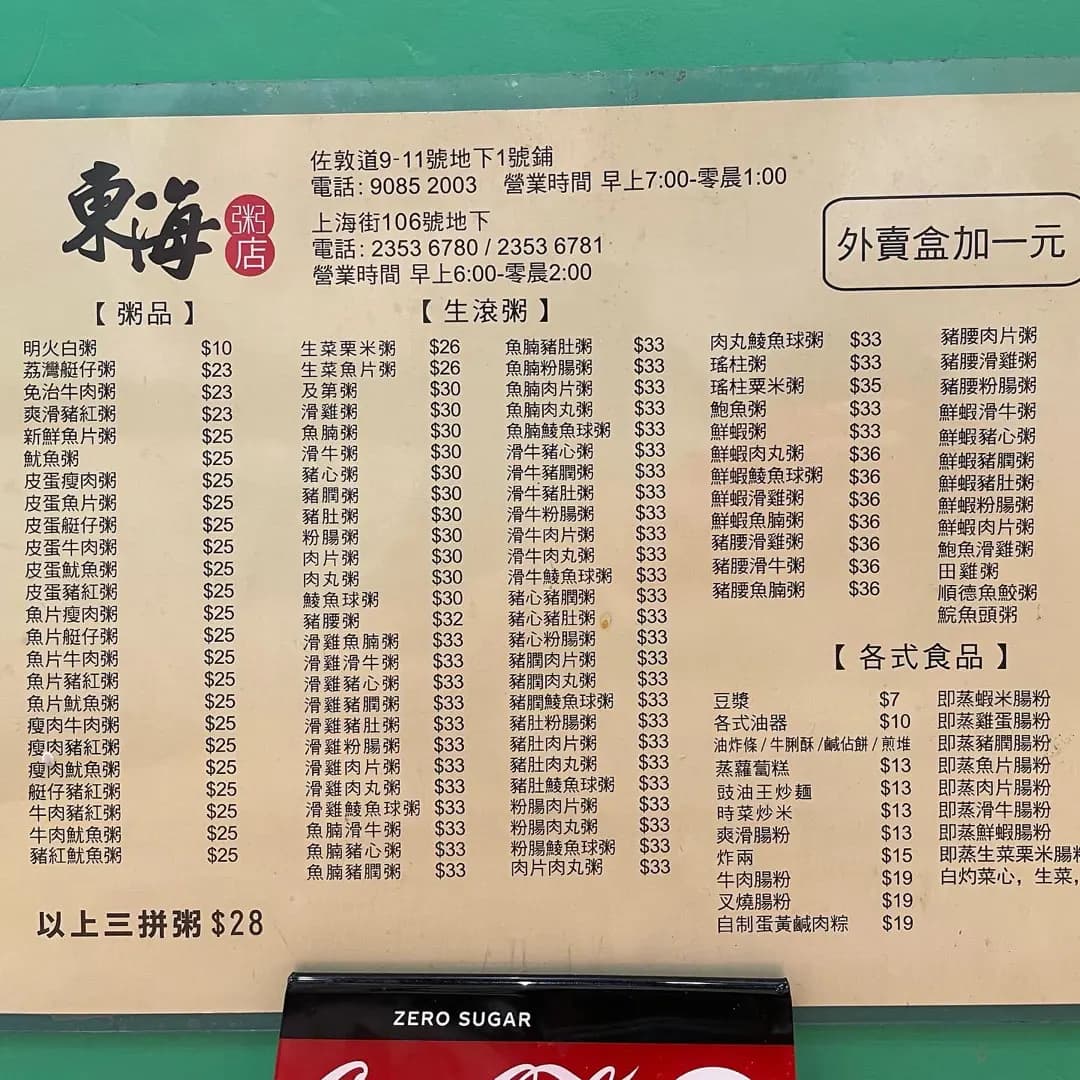 東海
粥店
佐敦道9-11號地下1號鋪
電話: 9085 2003 營業時間 早上7:00-零晨1:00
上海街106號地下
電話: 2353 6780 / 2353 6781
營業時間 早上6:00-零晨2:00
外賣盒加一元
【 粥品 】
明火白粥 $10
荔灣艇仔粥 $23
免治牛肉粥 $23
爽滑豬紅粥 $23
新鮮魚片粥 $25
魷魚粥 $25
皮蛋瘦肉粥 $25
皮蛋魚片粥 $25
皮蛋艇仔粥 $25
皮蛋牛肉粥 $25
皮蛋魷魚粥 $25
皮蛋豬紅粥 $25
魚片瘦肉粥 $25
魚片艇仔粥 $25
魚片牛肉粥 $25
魚片豬紅粥 $25
魚片魷魚粥 $25
瘦肉牛肉粥 $25
瘦肉豬紅粥 $25
瘦肉魷魚粥 $25
艇仔豬紅粥 $25
牛肉豬紅粥 $25
牛肉魷魚粥 $25
豬紅魷魚粥 $25
以上三拼粥 $28
【 生滾粥 】
生菜栗米粥 $26
生菜魚片粥 $26
及第粥 $30
滑雞粥 $30
魚腩粥 $30
滑牛粥 $30
豬心粥 $30
豬膶粥 $30
豬肚粥 $30
粉腸粥 $30
肉片粥 $30
肉丸粥 $30
鯪魚球粥 $30
豬腰粥 $32
滑雞魚腩粥 $33
滑雞滑牛粥 $33
滑雞豬心粥 $33
滑雞豬膶粥 $33
滑雞豬肚粥 $33
滑雞粉腸粥 $33
滑雞肉片粥 $33
滑雞肉丸粥 $33
滑雞鯪魚球粥 $33
魚腩滑牛粥 $33
魚腩豬心粥 $33
魚腩豬膶粥 $33
魚腩豬肚粥 $33
魚腩粉腸粥 $33
魚腩肉片粥 $33
魚腩肉丸粥 $33
魚腩鯪魚球粥 $33
滑牛豬心粥 $33
滑牛豬膶粥 $33
滑牛豬肚粥 $33
滑牛粉腸粥 $33
滑牛肉片粥 $33
滑牛肉丸粥 $33
滑牛鯪魚球粥 $33
豬心豬膶粥 $33
豬心豬肚粥 $33
豬心粉腸粥 $33
豬膶肉片粥 $33
豬膶肉丸粥 $33
豬膶鯪魚球粥 $33
豬肚粉腸粥 $33
豬肚肉片粥 $33
豬肚肉丸粥 $33
豬肚鯪魚球粥 $33
粉腸肉片粥 $33
粉腸肉丸粥 $33
粉腸鯪魚球粥 $33
肉片肉丸粥 $33
肉丸鯪魚球粥 $33
瑤柱粥 $33
瑤柱粟米粥 $35
鮑魚粥 $33
鮮蝦粥 $33
鮮蝦肉丸粥 $36
鮮蝦鯪魚球粥 $36
鮮蝦滑雞粥 $36
鮮蝦魚腩粥 $36
豬腰滑雞粥 $36
豬腰滑牛粥 $36
豬腰魚腩粥 $36
豬腰肉片粥
豬腰滑雞粥
豬腰粉腸粥
鮮蝦滑牛粥
鮮蝦豬心粥
鮮蝦豬膶粥
鮮蝦豬肚粥
鮮蝦粉腸粥
鮮蝦肉片粥
鮑魚滑雞粥
田雞粥
順德魚鮫粥
鯇魚頭粥
【 各式食品 】
豆漿 $7
各式油器 $10
油炸條 / 牛脷酥 /鹹佔餅 / 煎堆
蒸蘿蔔糕 $13
豉油王炒麵 $13
時菜炒米 $13
爽滑腸粉 $13
炸兩 $15
牛肉腸粉 $19
叉燒腸粉 $19
自制蛋黃鹹肉粽 $19
即蒸蝦米腸粉
即蒸雞蛋腸粉
即蒸豬膶腸粉
即蒸魚片腸粉
即蒸肉片腸粉
即蒸滑牛腸粉
即蒸鮮蝦腸粉
即蒸生菜栗米腸粉
白灼菜心，生菜，
ZERO SUGAR